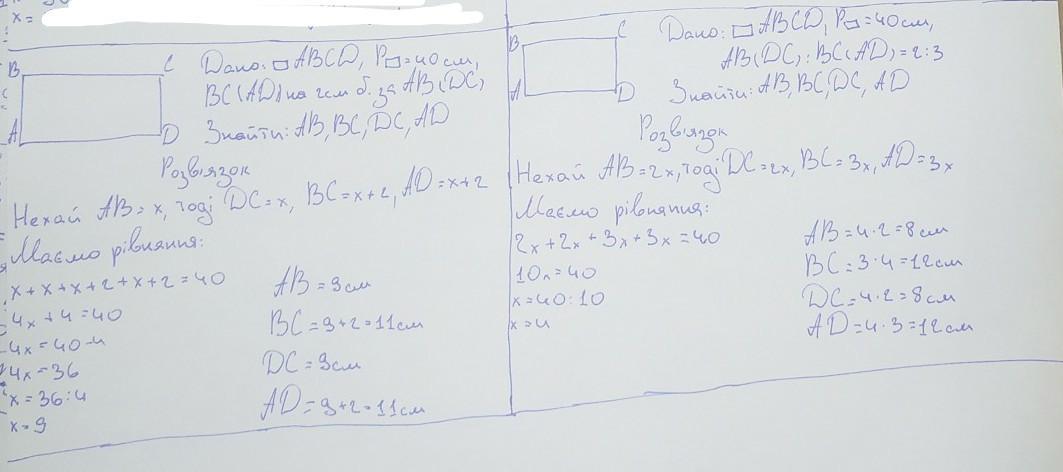 x =
B C
A D
Дано: □ ABCD, P□ = 40 см,
BC (AD) на 2см б. за AB (DC)
Знайти: AB, BC, DC, AD
Розв'язок
Нехай AB = x, тоді DC = x, BC = x + 2, AD = x + 2
Маємо рівняння:
x + x + x + 2 + x + 2 = 40
4x + 4 = 40
4x = 40 - 4
4x = 36
x = 36 : 4
x = 9
AB = 9см
BC = 9 + 2 = 11см
DC = 9см
AD = 9 + 2 = 11см
B C
A D
Дано: □ ABCD, P□ = 40 см,
AB (DC) : BC (AD) = 2 : 3
Знайти: AB, BC, DC, AD
Розв'язок
Нехай AB = 2x, тоді DC = 2x, BC = 3x, AD = 3x
Маємо рівняння:
2x + 2x + 3x + 3x = 40
10x = 40
x = 40 : 10
x = 4
AB = 4 · 2 = 8см
BC = 3 · 4 = 12см
DC = 4 · 2 = 8см
AD = 4 · 3 = 12см